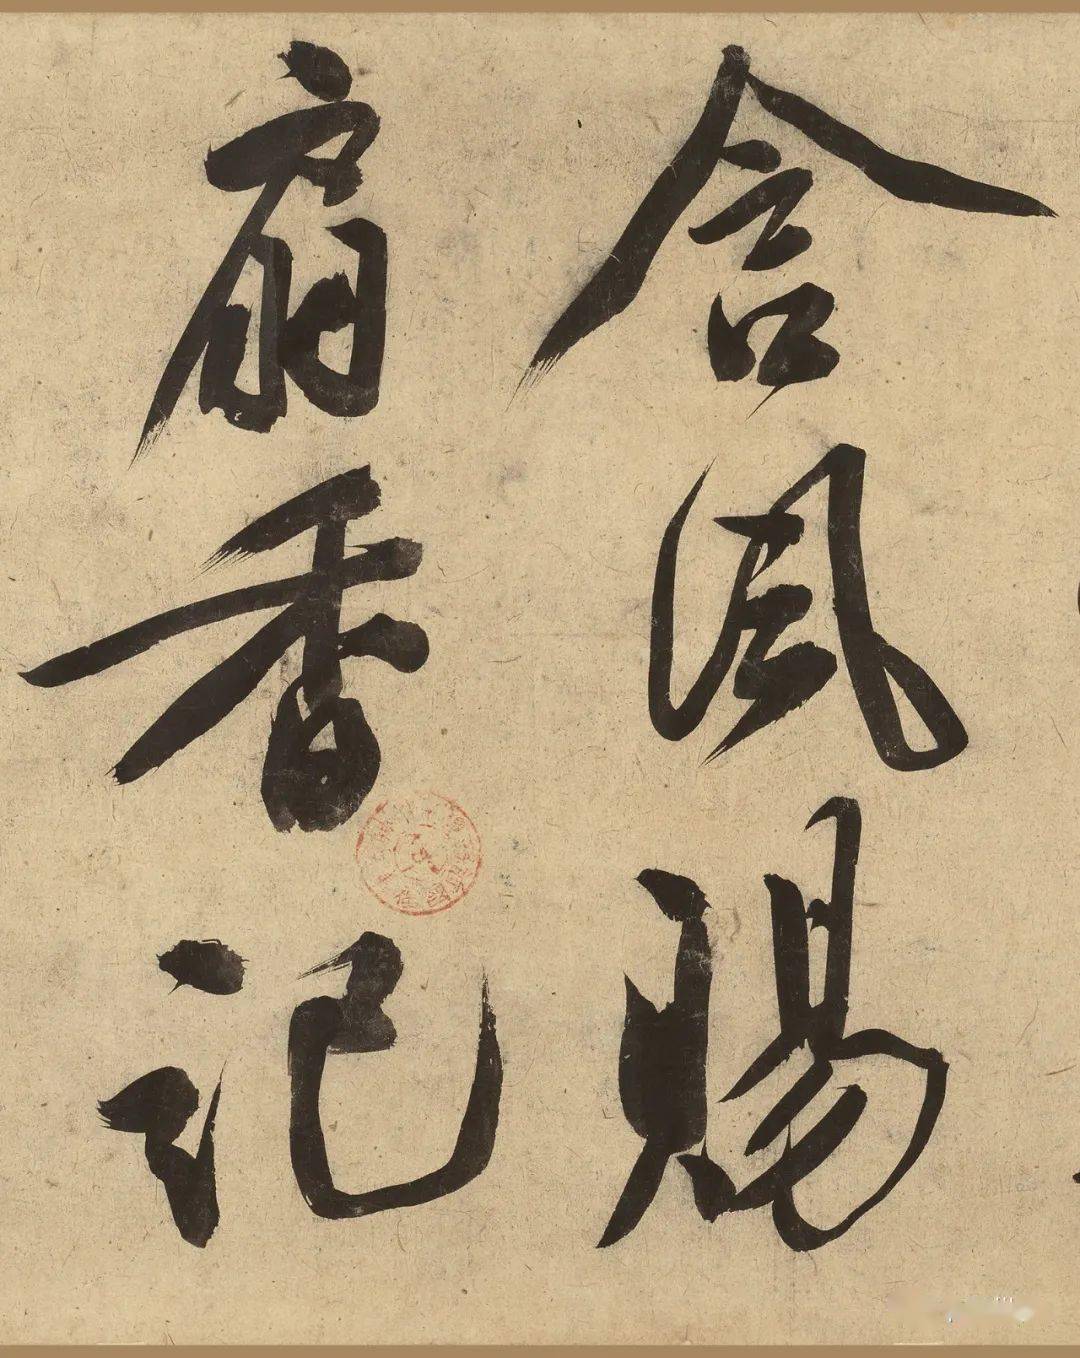 含風賜
扇香記